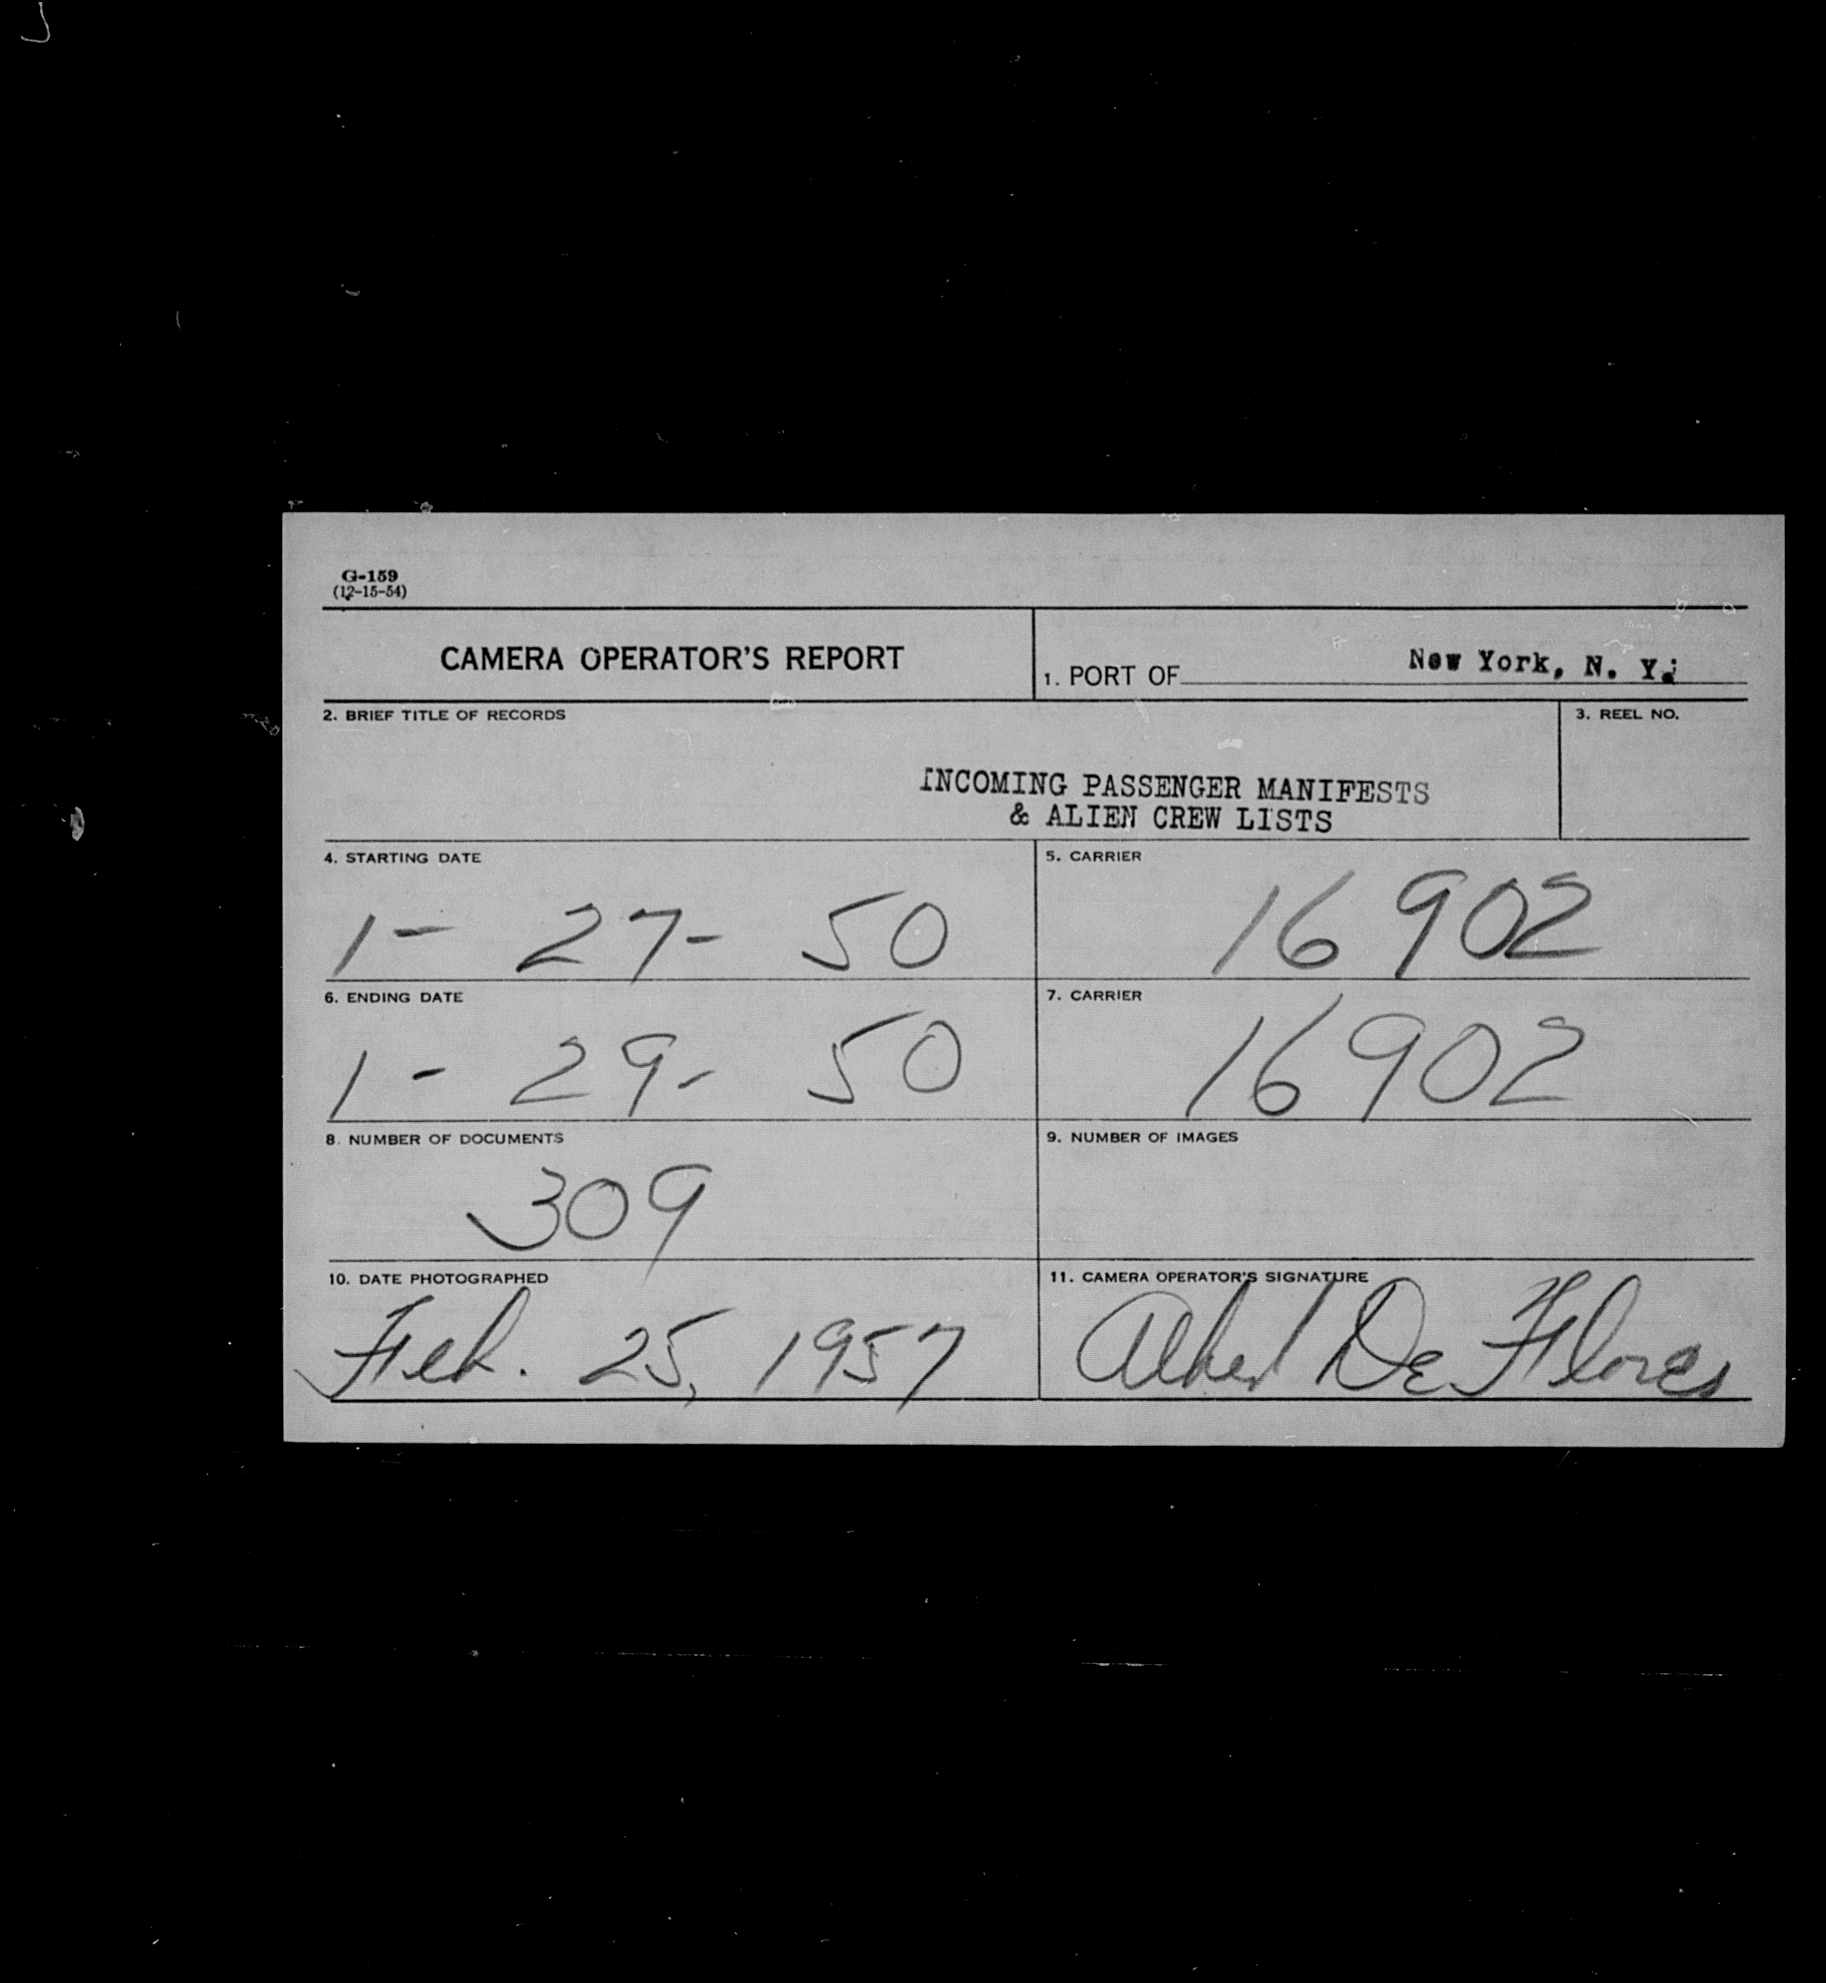 G-159
(12-15-54)
CAMERA OPERATOR'S REPORT
1. PORT OF New York, N. Y.
2. BRIEF TITLE OF RECORDS
3. REEL NO.
INCOMING PASSENGER MANIFESTS
& ALIEN CREW LISTS
4. STARTING DATE
1- 27- 50
5. CARRIER
16902
6. ENDING DATE
1- 29- 50
7. CARRIER
16902
8. NUMBER OF DOCUMENTS
309
9. NUMBER OF IMAGES
10. DATE PHOTOGRAPHED
Feb. 25, 1957
11. CAMERA OPERATOR'S SIGNATURE
De Flores